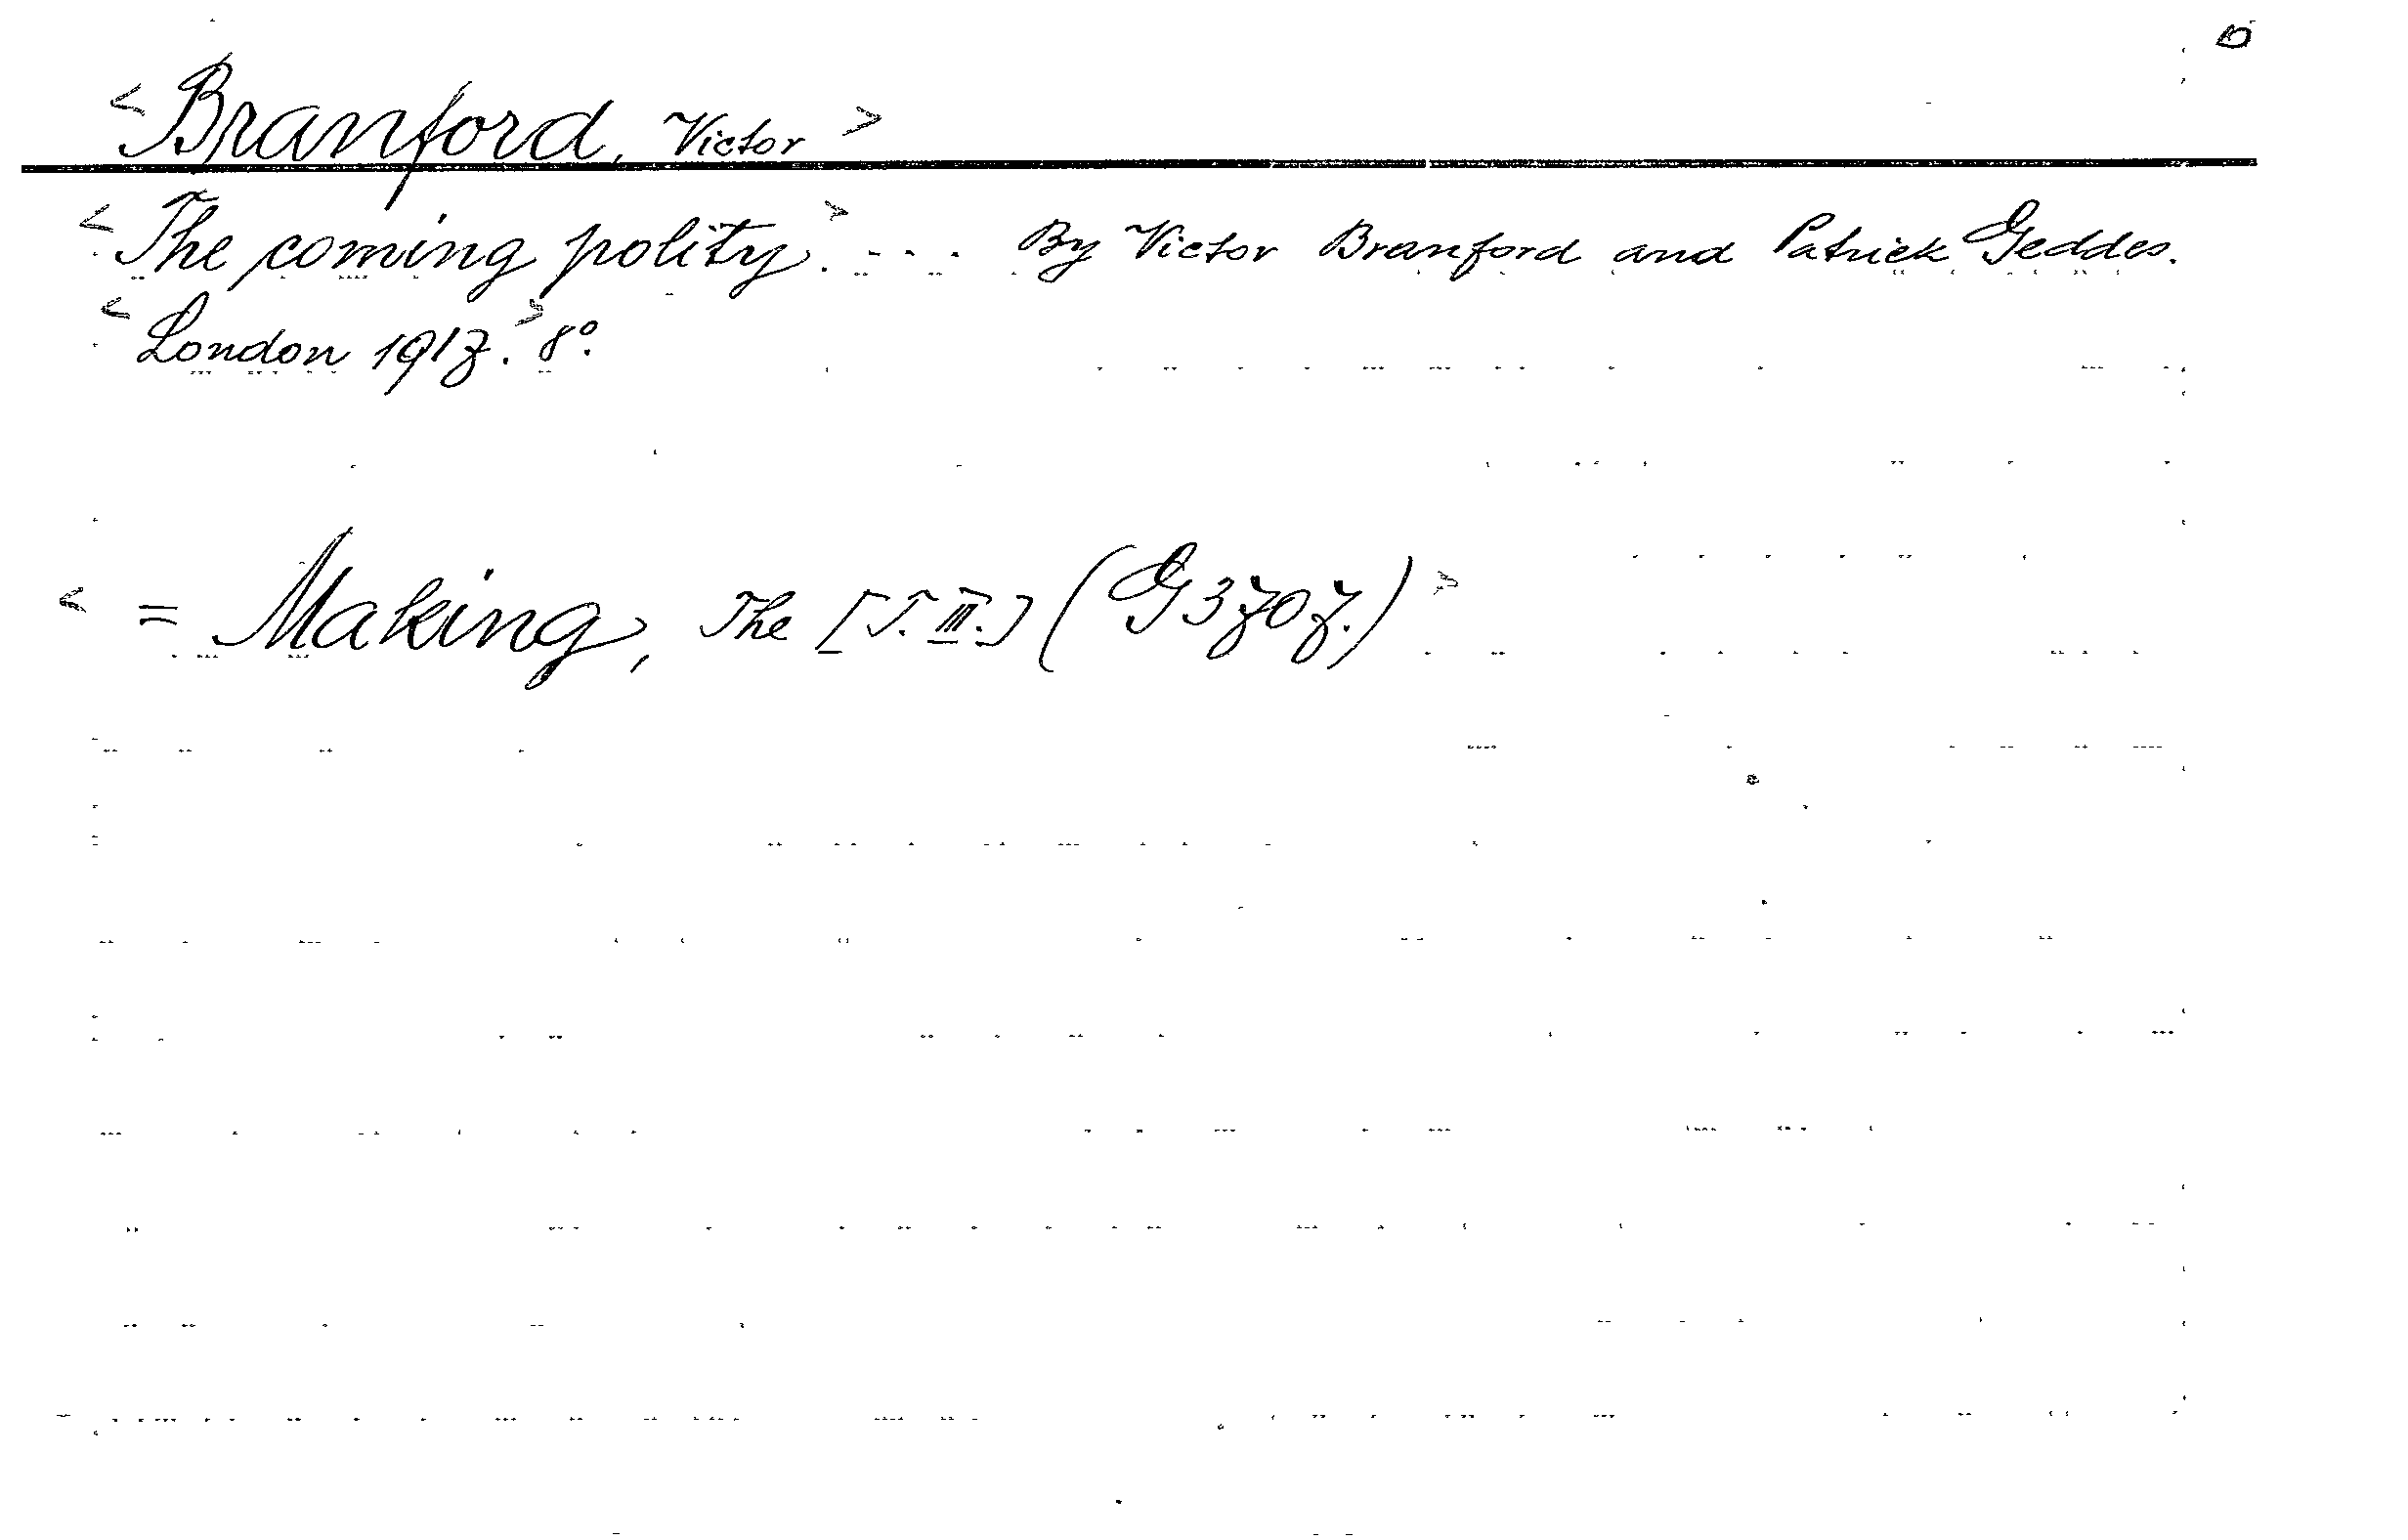 <Branford, Victor>
<The coming polity.> ... By Victor Branford and Patrick Geddes.
<London 1917.> 8°.
< = Making, The [T. III.] (G3707.) >